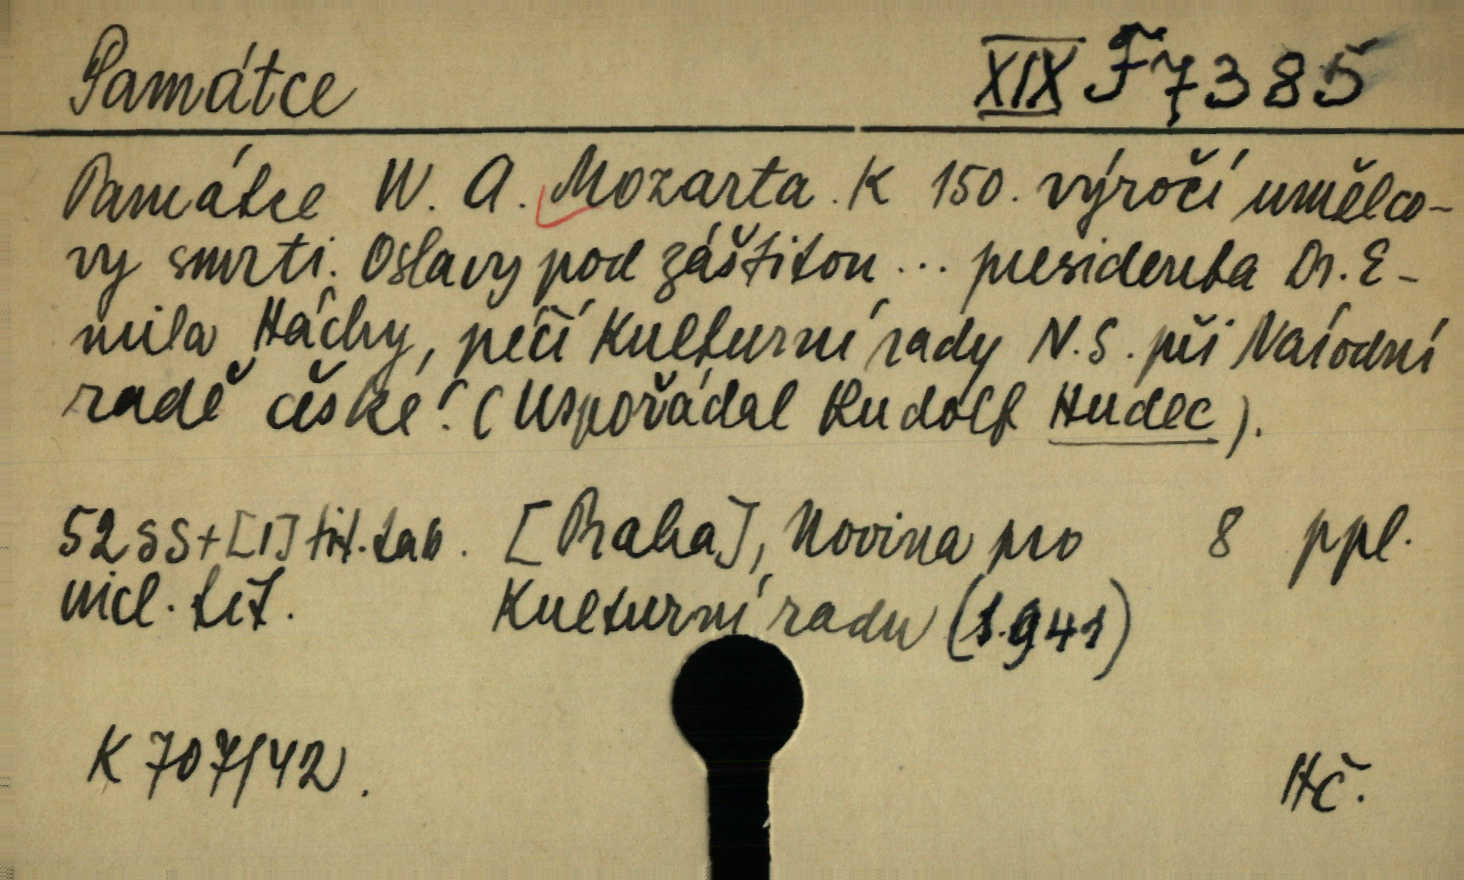 Památce XIX F 7385
Památce W. A. Mozarta. K 150. výročí umělco-
vy smrti. Oslavy pod záštitou ... presidenta Dr. E-
mila Háchy, péčí Kulturní rady N.S. při Národní
radě české. (Uspořádal Rudolf Hudec).
52 ss + [1] tit. tab. [Praha], Novina pro 8 ppl.
Kulturní radu (1941)
K 707/42. Hč.